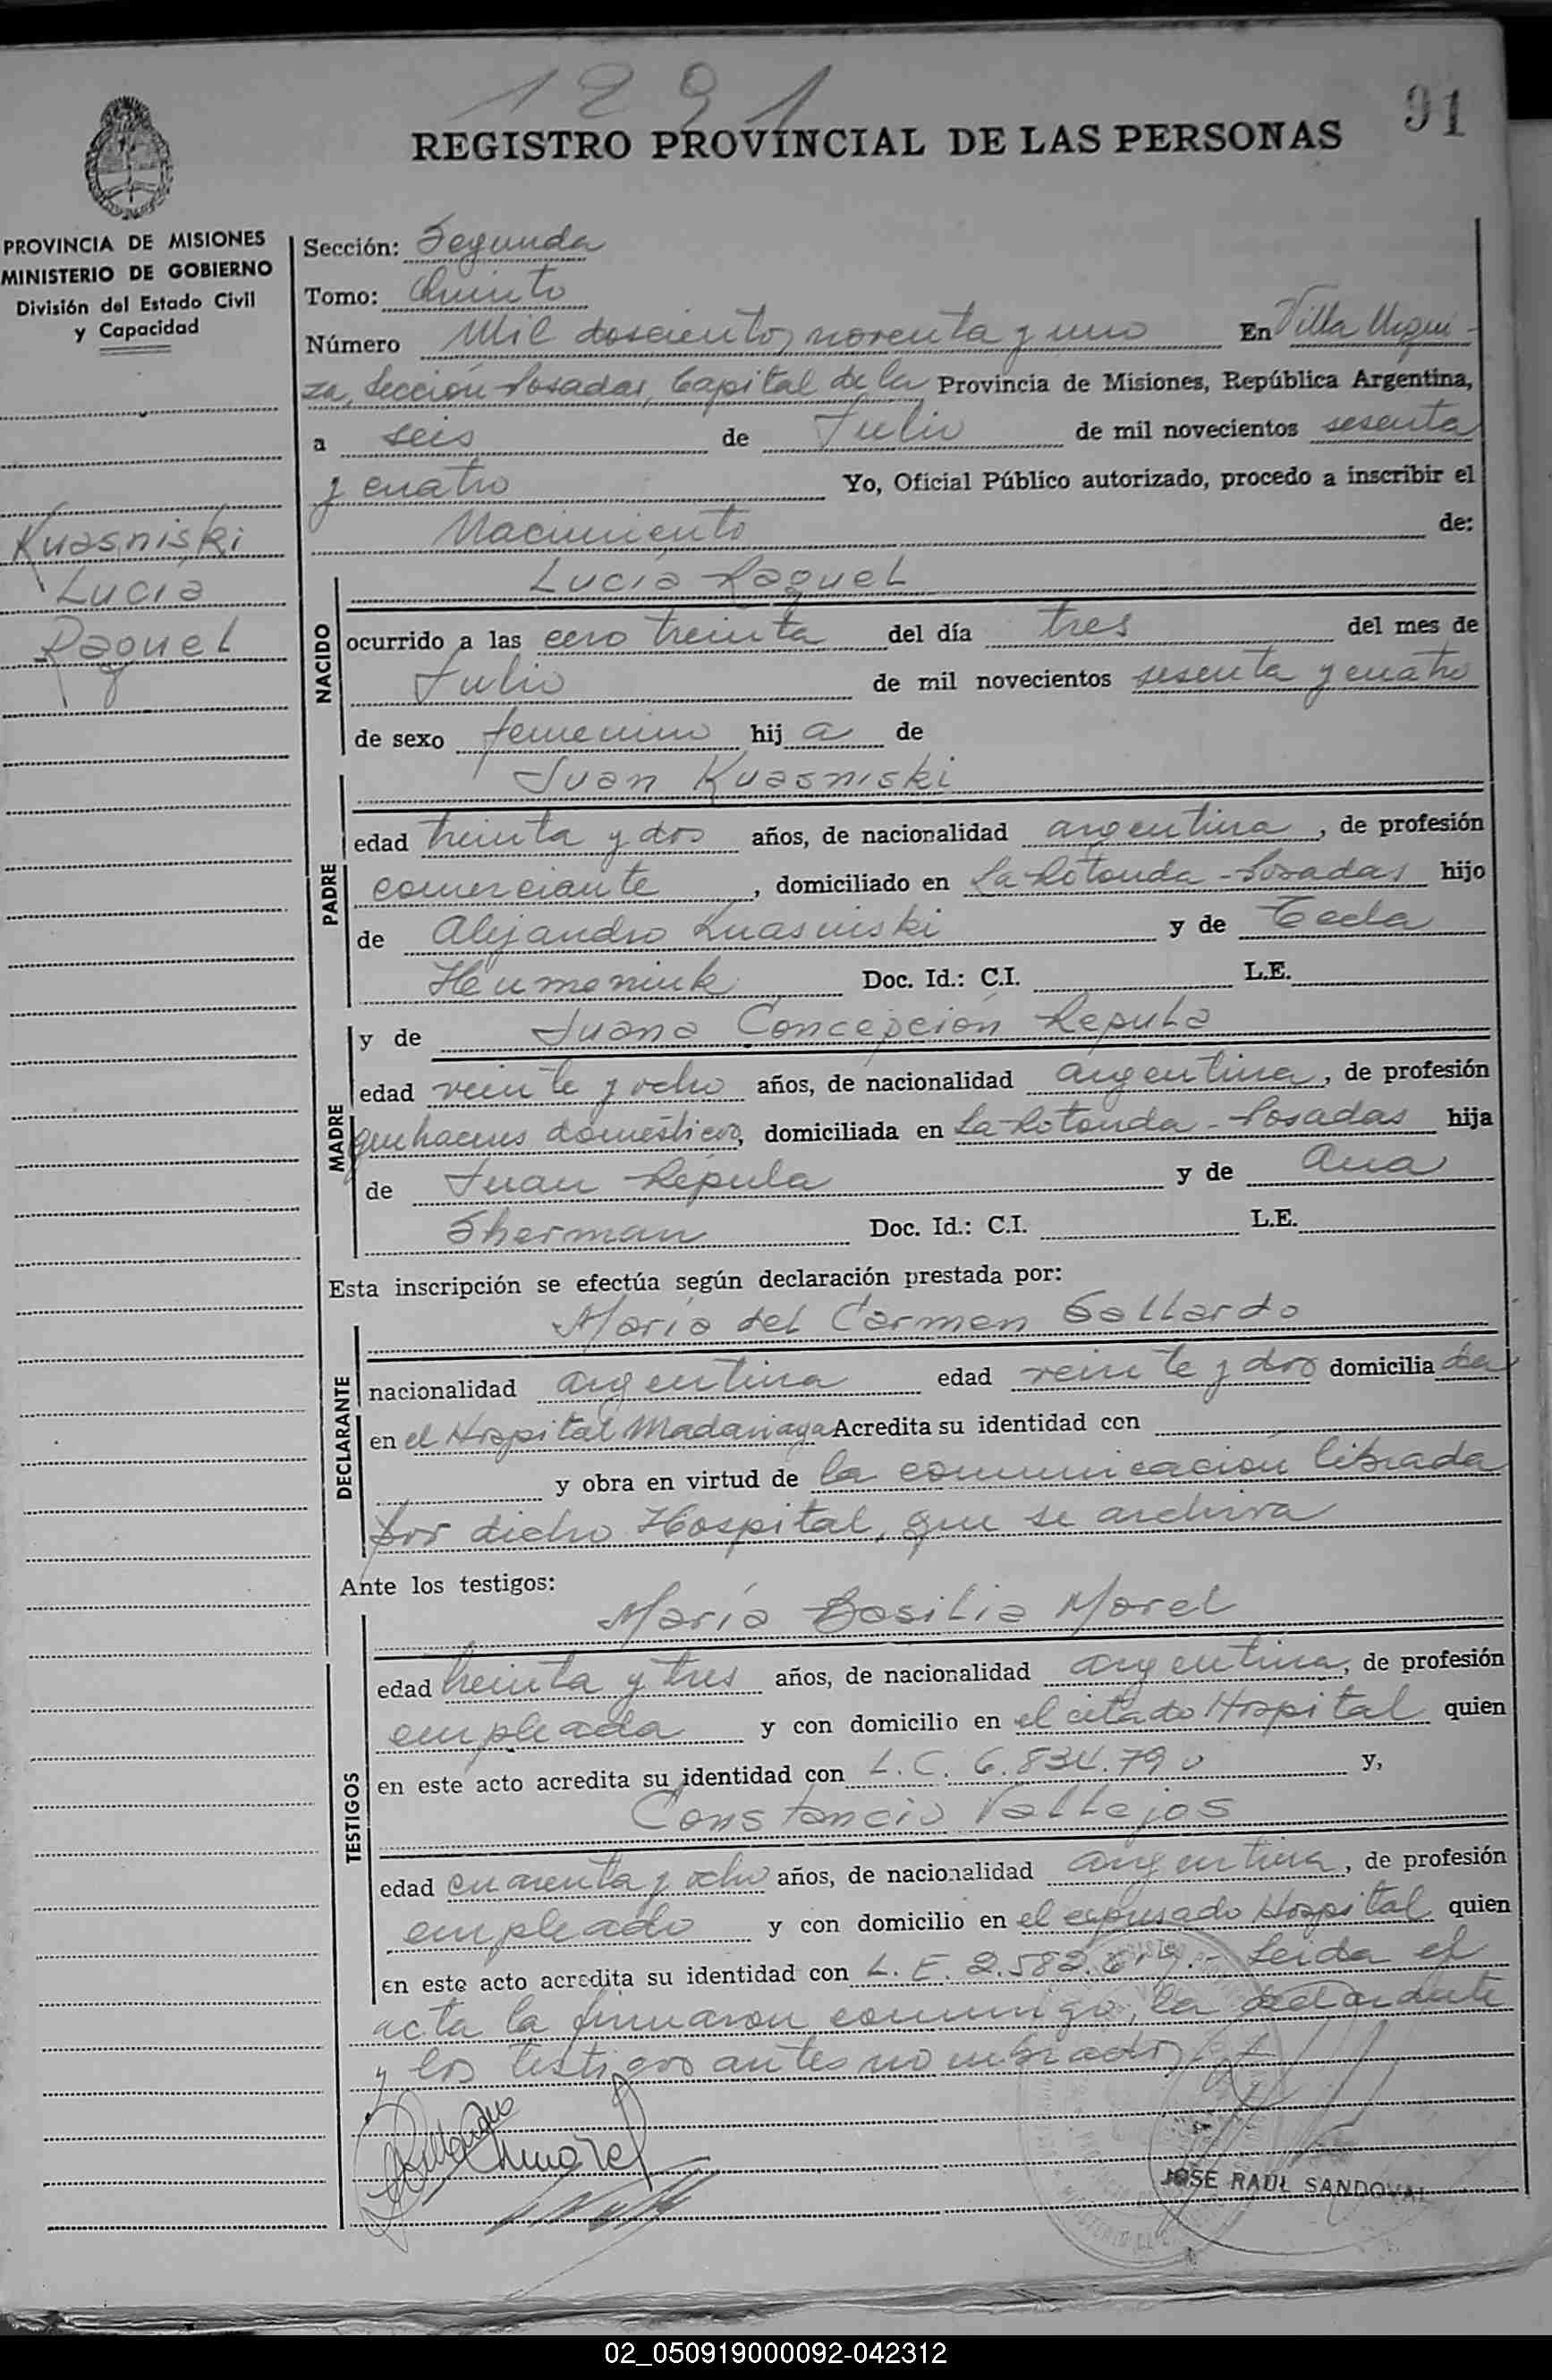 1291
91
REGISTRO PROVINCIAL DE LAS PERSONAS
PROVINCIA DE MISIONES
MINISTERIO DE GOBIERNO
División del Estado Civil
y Capacidad
Kuasniski
Lucia
Raquel
Sección: Segunda
Tomo: Quinto
Número Mil doscientos noventa y uno En Villa Urqui-
za, Sección Posadas, Capital de la Provincia de Misiones, República Argentina,
a seis de Julio de mil novecientos sesenta
y cuatro Yo, Oficial Público autorizado, procedo a inscribir el
Nacimiento de:
NACIDO
Lucía Raquel
ocurrido a las cero treinta del día tres del mes de
Julio de mil novecientos sesenta y cuatro
de sexo femenino hija de
PADRE
Juan Kuasniski
edad treinta y dos años, de nacionalidad argentina, de profesión
comerciante, domiciliado en La Rotonda - Posadas hijo
de Alejandro Kuasniski y de Tecla
Heumeniuk Doc. Id.: C.I. L.E.
MADRE
y de Juana Concepción Repula
edad veinte y ocho años, de nacionalidad argentina, de profesión
quehaceres domésticos, domiciliada en La Rotonda - Posadas hija
de Juan Repula y de Ana
Sherman Doc. Id.: C.I. L.E.
Esta inscripción se efectúa según declaración prestada por:
DECLARANTE
María del Carmen Gallardo
nacionalidad argentina edad veinte y dos domiciliada
en el Hospital Madariaga Acredita su identidad con
y obra en virtud de la comunicación librada
por dicho Hospital, que se archiva
Ante los testigos:
TESTIGOS
María Basilia Morel
edad treinta y tres años, de nacionalidad argentina, de profesión
empleada y con domicilio en el citado Hospital quien
en este acto acredita su identidad con L. C. 6.834.790 y,
Constancio Vallejos
edad cuarenta y ocho años, de nacionalidad argentina, de profesión
empleado y con domicilio en el expresado Hospital quien
en este acto acredita su identidad con L. E. 2.582. Leida el
acta la firmaron conmigo, la declarante
y los testigos antes nombrados
JOSE RAUL SANDOVAL
02_050919000092-042312